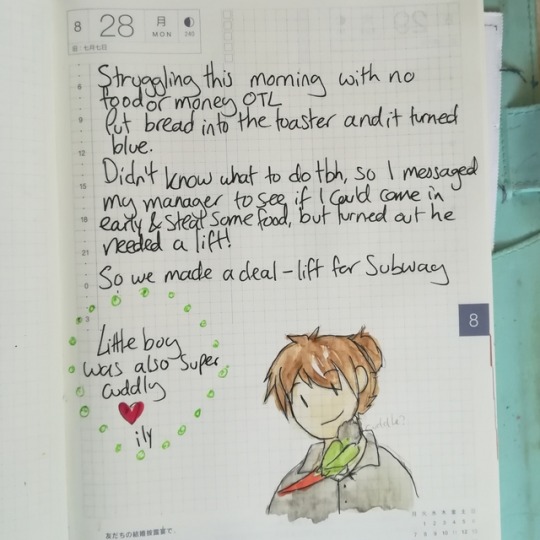 8 28 月 MON
旧:七月七日
240
6
9
12
15
18
21
0
3
Struggling this morning with no
food or money OTL
Put bread into the toaster and it turned
blue.
Didn't know what to do tbh, so I messaged
my manager to see if I could come in
early & steal some food, but turned out he
needed a lift!
So we made a deal - lift for Subway
Little boy
was also super
cuddly
ily
8
cuddle?
友だちの結婚披露宴で、